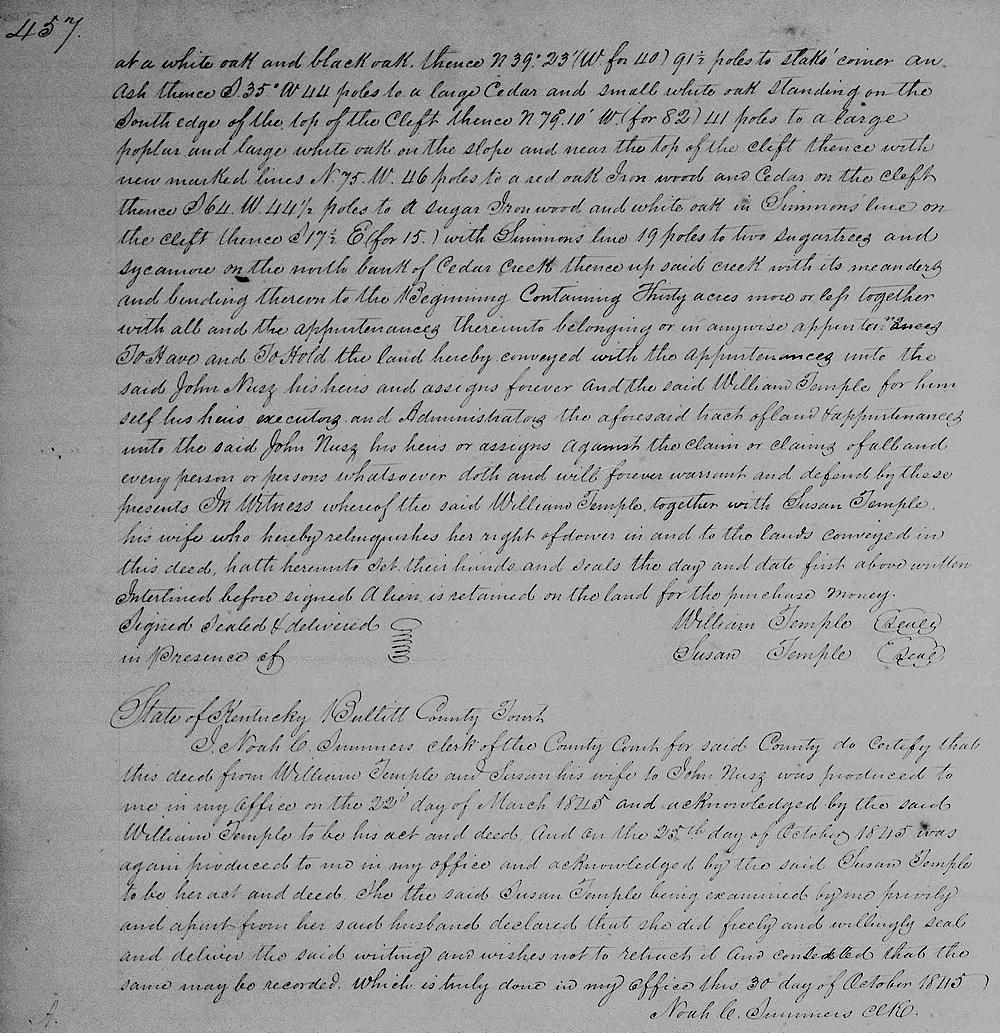 457.
at a white oak and black oak. thence N 39° 23' (W for 40) 91½ poles to stake corner an
Ash thence S 35° W 44 poles to a large Cedar and small white oak standing on the
South edge of the top of the Cleft thence N 79.10' W (for 82) 41 poles to a large
poplar and large white oak on the slope and near the top of the cleft thence with
new marked lines N. 75. W. 46 poles to a red oak Iron wood and Cedar on the cleft
thence S 64. W. 44½ poles to a sugar Ironwood and white oak in Simmons line on
the cleft thence S 17½ E (for 15.) with Simmons line 19 poles to two sugartrees and
sycamore on the north bank of Cedar Creek thence up said creek with its meanders
and binding thereon to the Beginning Containing Thirty acres more or less together
with all and the appurtenances thereunto belonging or in anywise appurtainances
To Have and To Hold the land hereby conveyed with the appurtenances unto the
said John Nusz his heirs and assigns forever and the said William Temple for him
self his heirs executors and Administrators the aforesaid tract of land & appurtenances
unto the said John Nusz his heirs or assigns against the claim or claims of all and
every person or persons whatsoever doth and will forever warrant and defend by these
presents In Witness whereof the said William Temple, together with Susan Temple,
his wife who hereby relinquishes her right of dower in and to the lands conveyed in
this deed, hath hereunto set their hands and seals the day and date first above written
Interlined before signed A lien is retained on the land for the purchase money.
Signed Sealed & delivered William Temple (Seal)
in Presence of Susan Temple (Seal)
State of Kentucky Bullitt County Court
I, Noah C. Summers clerk of the County Court for said County do certify that
this deed from William Temple and Susan his wife to John Nusz was produced to
me in my office on the 22d day of March 1845 and acknowledged by the said
William Temple to be his act and deed. And on the 25th day of October 1845 was
again produced to me in my office and acknowledged by the said Susan Temple
to be her act and deed. She the said Susan Temple being examined by me privily
and apart from her said husband declared that she did freely and willingly seal
and deliver the said writing and wishes not to retract it and consented that the
same may be recorded. Which is truly done in my office this 30 day of October 1845
Noah C. Summers clk.